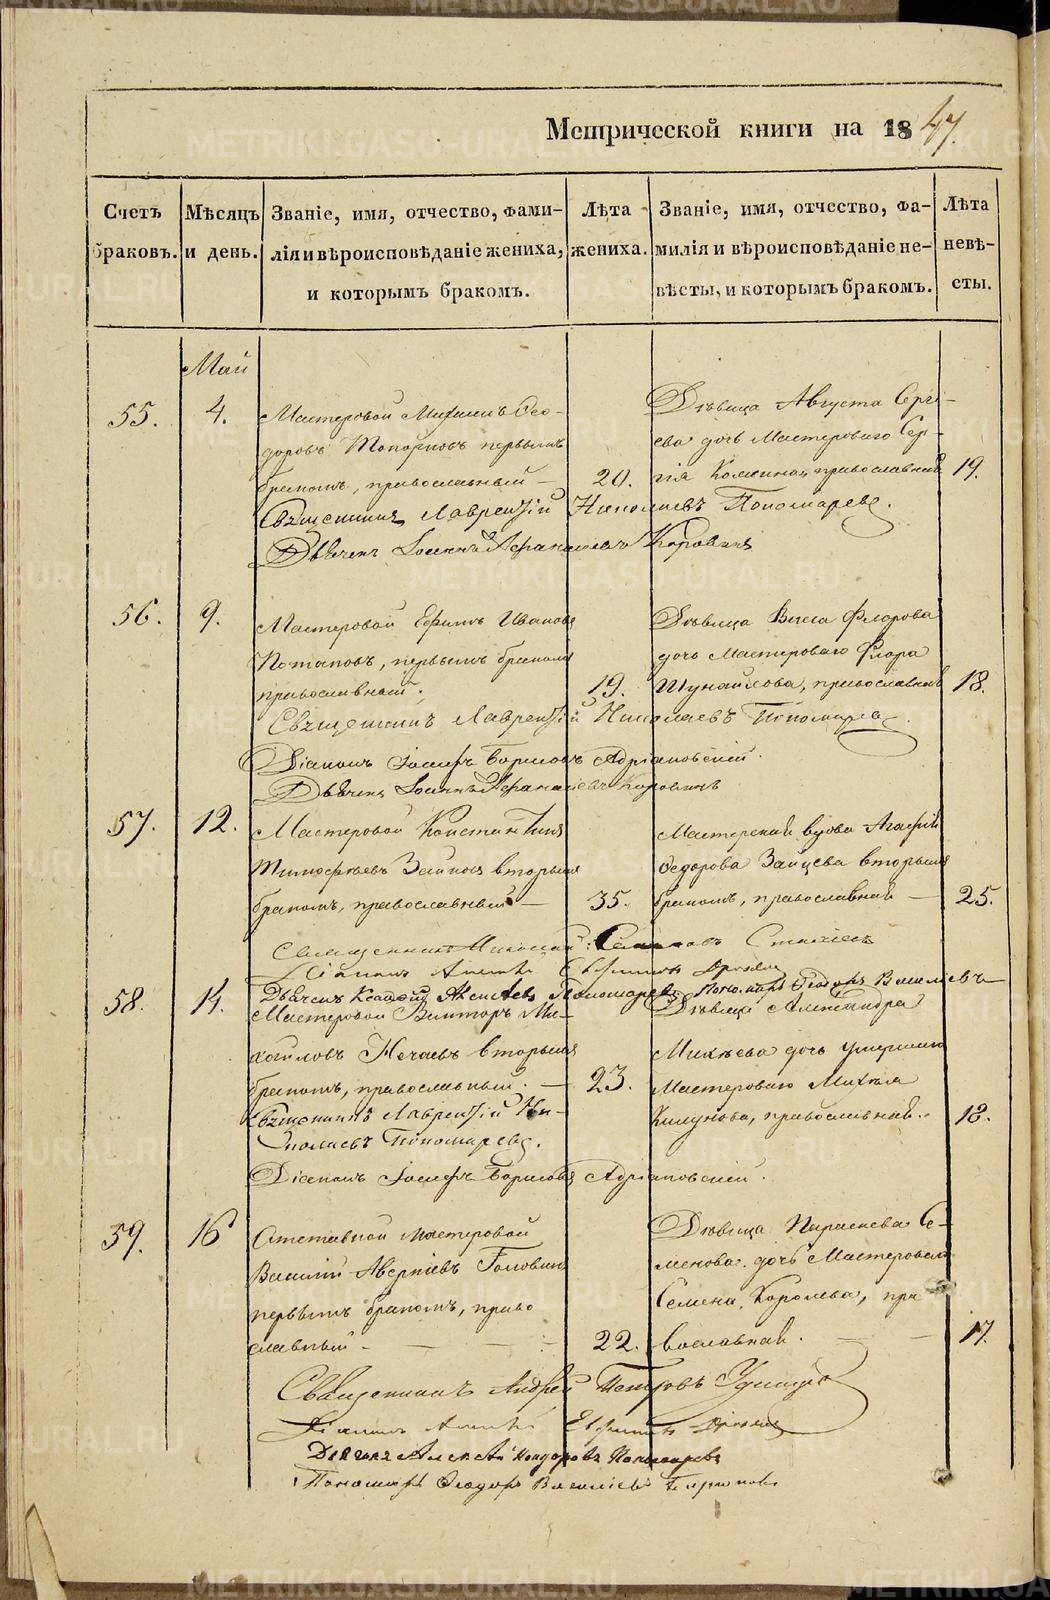 Метрической книги на 1847
Счетъ браковъ.
Мѣсяцъ и день.
Званіе, имя, отчество, фами-
лія и вѣроисповѣданіе жениха,
и которымъ бракомъ.
Лѣта жениха.
Званіе, имя, отчество, фа-
милія и вѣроисповѣданіе не-
вѣсты, и которымъ бракомъ.
Лѣта невѣ-
сты.
Май
55. 4.
Мастеровой Михаилъ Ѳео-
доровъ Топорковъ первымъ
бракомъ, православный 20.
Дѣвица Августа Сергі-
ева дочь Мастероваго Сер-
гія православная 19.
Священникъ Лаврентій Николаевъ Пономаревъ.
Дьячекъ Іоаннъ Афанасіевъ Коровинъ
56. 9.
Мастеровой Ефимъ Ивановъ
Потаповъ, первымъ бракомъ
православный. 19.
Дѣвица Васса Флорова
дочь Мастероваго Флора
Шунайлова, православная 18.
Священникъ Лаврентій Николаевъ Пономаревъ.
Діаконъ Іосифъ Борисовъ Адріановскій.
Дьячекъ Іоаннъ Афанасіевъ Коровинъ
57. 12.
Мастеровой Константинъ
Тимофѣевъ вторымъ
бракомъ, православный 35.
Мастерская вдова Агафія
Ѳедорова Зайцева вторымъ
бракомъ, православная 25.
Священникъ Николай
Діаконъ
Дьячекъ Алексѣевъ Пономаревъ Пономарь Ѳеодоръ Василіевъ
58. 14.
Мастеровой Викторъ Ми-
хайловъ Нечаевъ вторымъ
бракомъ, православный. 23.
Дѣвица Александра
Михѣева дочь умершаго
Мастероваго Михѣя
православная. 18.
Священникъ Лаврентій Ни-
колаевъ Пономаревъ.
Діаконъ Іосифъ Борисовъ Адріановскій.
59. 16
Отставной мастеровой
Василій Аверкіевъ Головинъ
первымъ бракомъ, право
славный 22.
Дѣвица Параскева Се-
менова дочь Мастероваго
Семена Королева, пра
вославная. 17.
Священникъ Андрей Петровъ Удинцевъ
Діаконъ
Дьячекъ Алексѣй Пономаревъ
Пономарь Ѳеодоръ Василіевъ
METRIKI.GASO-URAL.RU